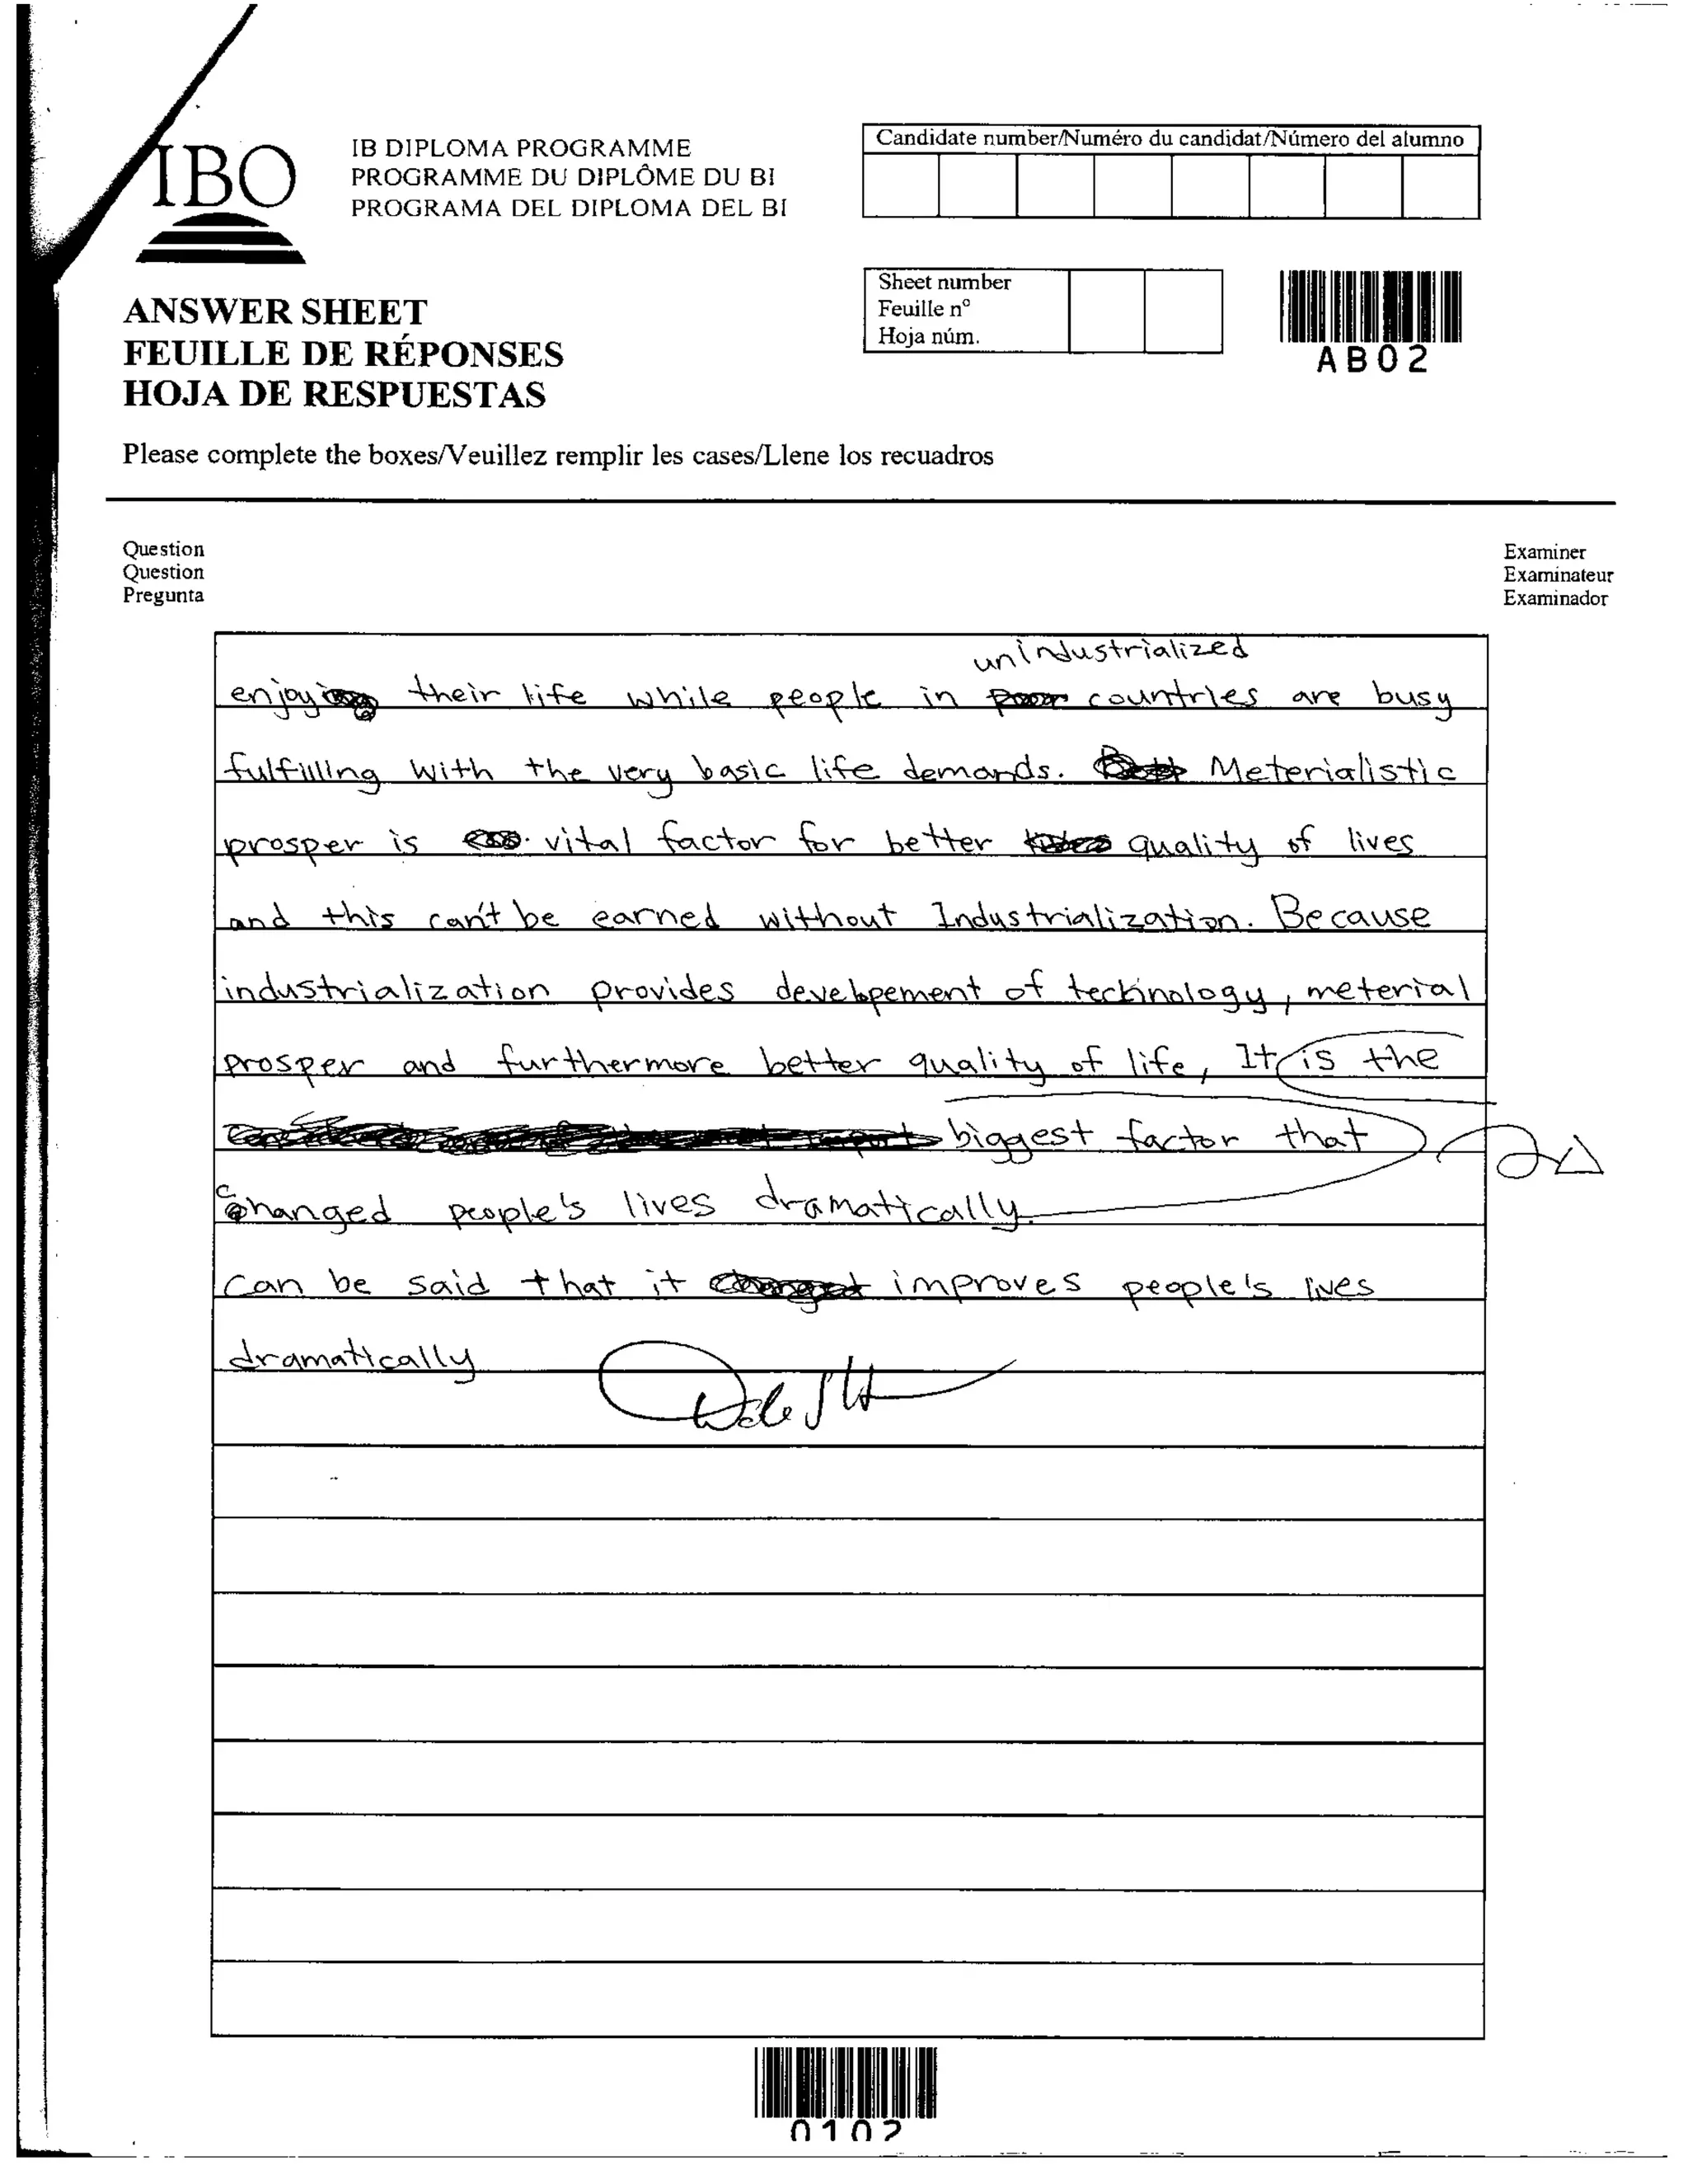 IBO
IB DIPLOMA PROGRAMME
PROGRAMME DU DIPLÔME DU BI
PROGRAMA DEL DIPLOMA DEL BI
Candidate number/Numéro du candidat/Número del alumno
Sheet number
Feuille nº
Hoja núm.
AB02
ANSWER SHEET
FEUILLE DE RÉPONSES
HOJA DE RESPUESTAS
Please complete the boxes/Veuillez remplir les cases/Llene los recuadros
Question
Question
Pregunta
Examiner
Examinateur
Examinador
unindustrialized
enjoy their life while people in countries are busy
fulfilling with the very basic life demands. Meterialistic
prosper is vital factor for better quality of lives
and this can't be earned without Industrialization. Because
industrialization provides developement of technology, meterial
prosper and furthermore better quality of life, It is the
biggest factor that
changed people's lives dramatically.
can be said that it improves people's lives
dramatically
0102